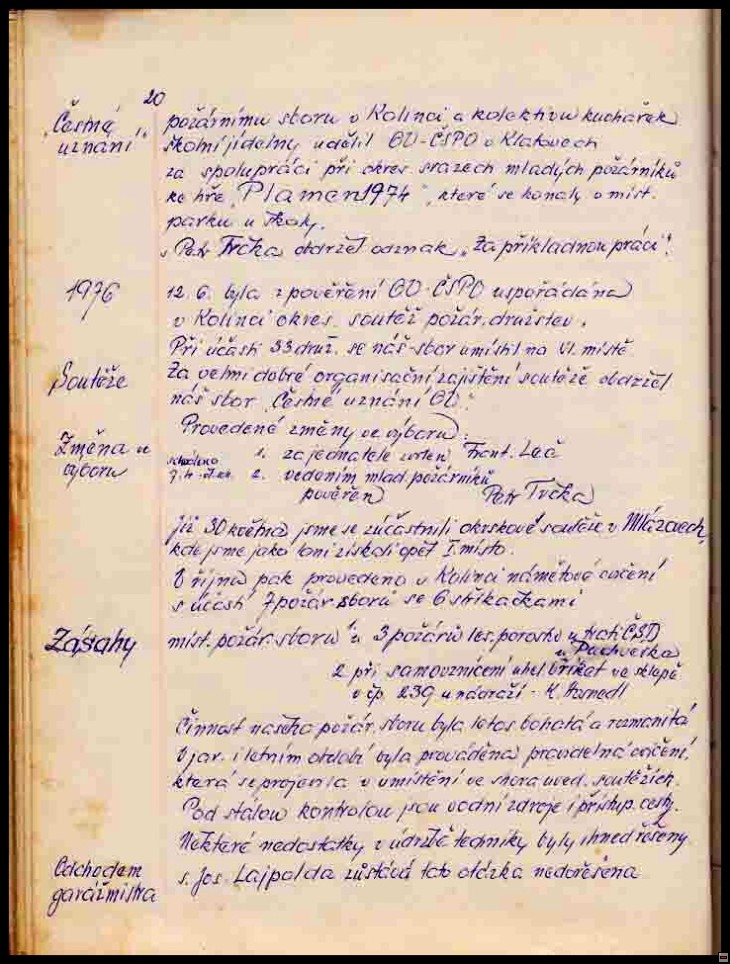 20
"Čestné uznání"
požárnímu sboru v Kolinci a kolektivu kuchařek
školní jídelny udělil OV-ČSPO v Klatovech
za spolupráci při okres. srazech mladých požárníků
ke hře "Plamen 1974", které se konaly v míst.
parku u školy.
s. Petr Trčka obdržel odznak "Za příkladnou práci".
1976
12. 6. byla z pověření OV-ČSPO uspořádána
v Kolinci okres. soutěž požár. družstev.
Při účasti 33 druž. se náš sbor umístil na VI. místě
Soutěže
Za velmi dobré organisační zajištění soutěže obdržel
náš sbor "Čestné uznání OV".
Změna ve
výboru
Provedené změny ve výboru:
schváleno
1. za jednatele zvolen Frant. Leč
2. vedením mlad. požárníků
pověřen Petr Trčka
Již 30 května jsme se zúčastnili okrskové soutěže v Mlázovech,
kde jsme jako loni získali opět I. místo.
V říjnu pak provedeno v Kolinci námětové cvičení
s účastí 7 požár. sborů se 6 stříkačkami
Zásahy
míst. požár. sboru u 3 požárů les. porostů u trati ČSD
u Puchverka
2 při samovznícení uhel. briket ve sklepě
v čp. 239 u nádraží - K.
Činnost našeho požár. sboru byla letos bohatá a rozmanitá
V jar. i letním období byla prováděna pravidelná cvičení,
která se projevila v umístění ve shora uved. soutěžích.
Pod stálou kontrolou jsou vodní zdroje i přístup. cesty.
Některé nedostatky v údržbě techniky byly ihned řešeny
Odchodem
garážmistra
s. Jos. Lajpolda zůstává tato otázka nedořešena